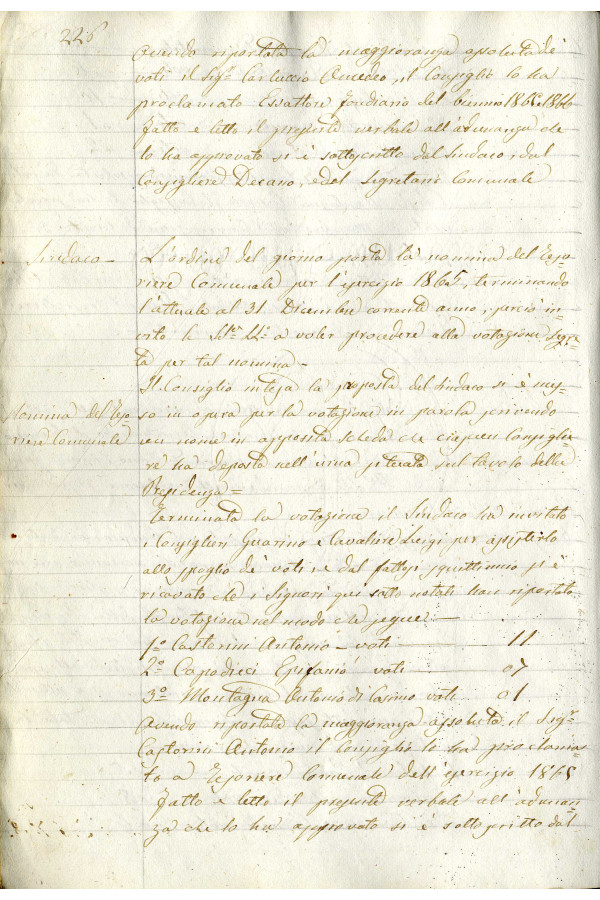 226
avendo riportata la maggioranza assoluta de'
voti il Sigr Carluccio Amedeo, il Consiglio lo ha
proclamato Esattore fondiario del biennio 1865.1866
Fatto e letto il presente verbale all'adunanza che
lo ha approvato si è sottoscritto dal Sindaco, dal
Consigliere Decano, e dal Segretario Comunale
Sindaco =
L'ordine del giorno porta la nomina del Teso
riere Comunale per l'esercizio 1865, terminando
l'attuale al 31. Dicembre corrente anno, perciò in
vito le a voler procedere alla votazione segre
ta per tal nomina =
Nomina del Teso
riere Comunale
Il Consiglio intesa la proposta del Sindaco si è mes
so in opera per la votazione in parola scrivendo
un nome in apposita scheda che ciascun Consiglie
re ha deposta nell'urna situata sul tavolo della
Presidenza =
Terminata la votazione il Sindaco ha invitato
i Consiglieri Guarino e Cavaliere Luigi per assisterlo
allo spoglio de' voti e dal fattosi squittinio si è
ricavato che i Signori qui sotto notati han riportato
la votazione nel modo che segue =
1º Castorini Antonio = voti 11
2º Capodieci Epifanio voti 07
3º Montagna Antonio di Cosimo voti 01
Avendo riportata la maggioranza assoluta il Sigr
Castorini Antonio il Consiglio lo ha proclama
to a Tesoriere Comunale dell'esercizio 1865
Fatto e letto il presente verbale all'adunan
za che lo ha approvato si è sottoscritto dal